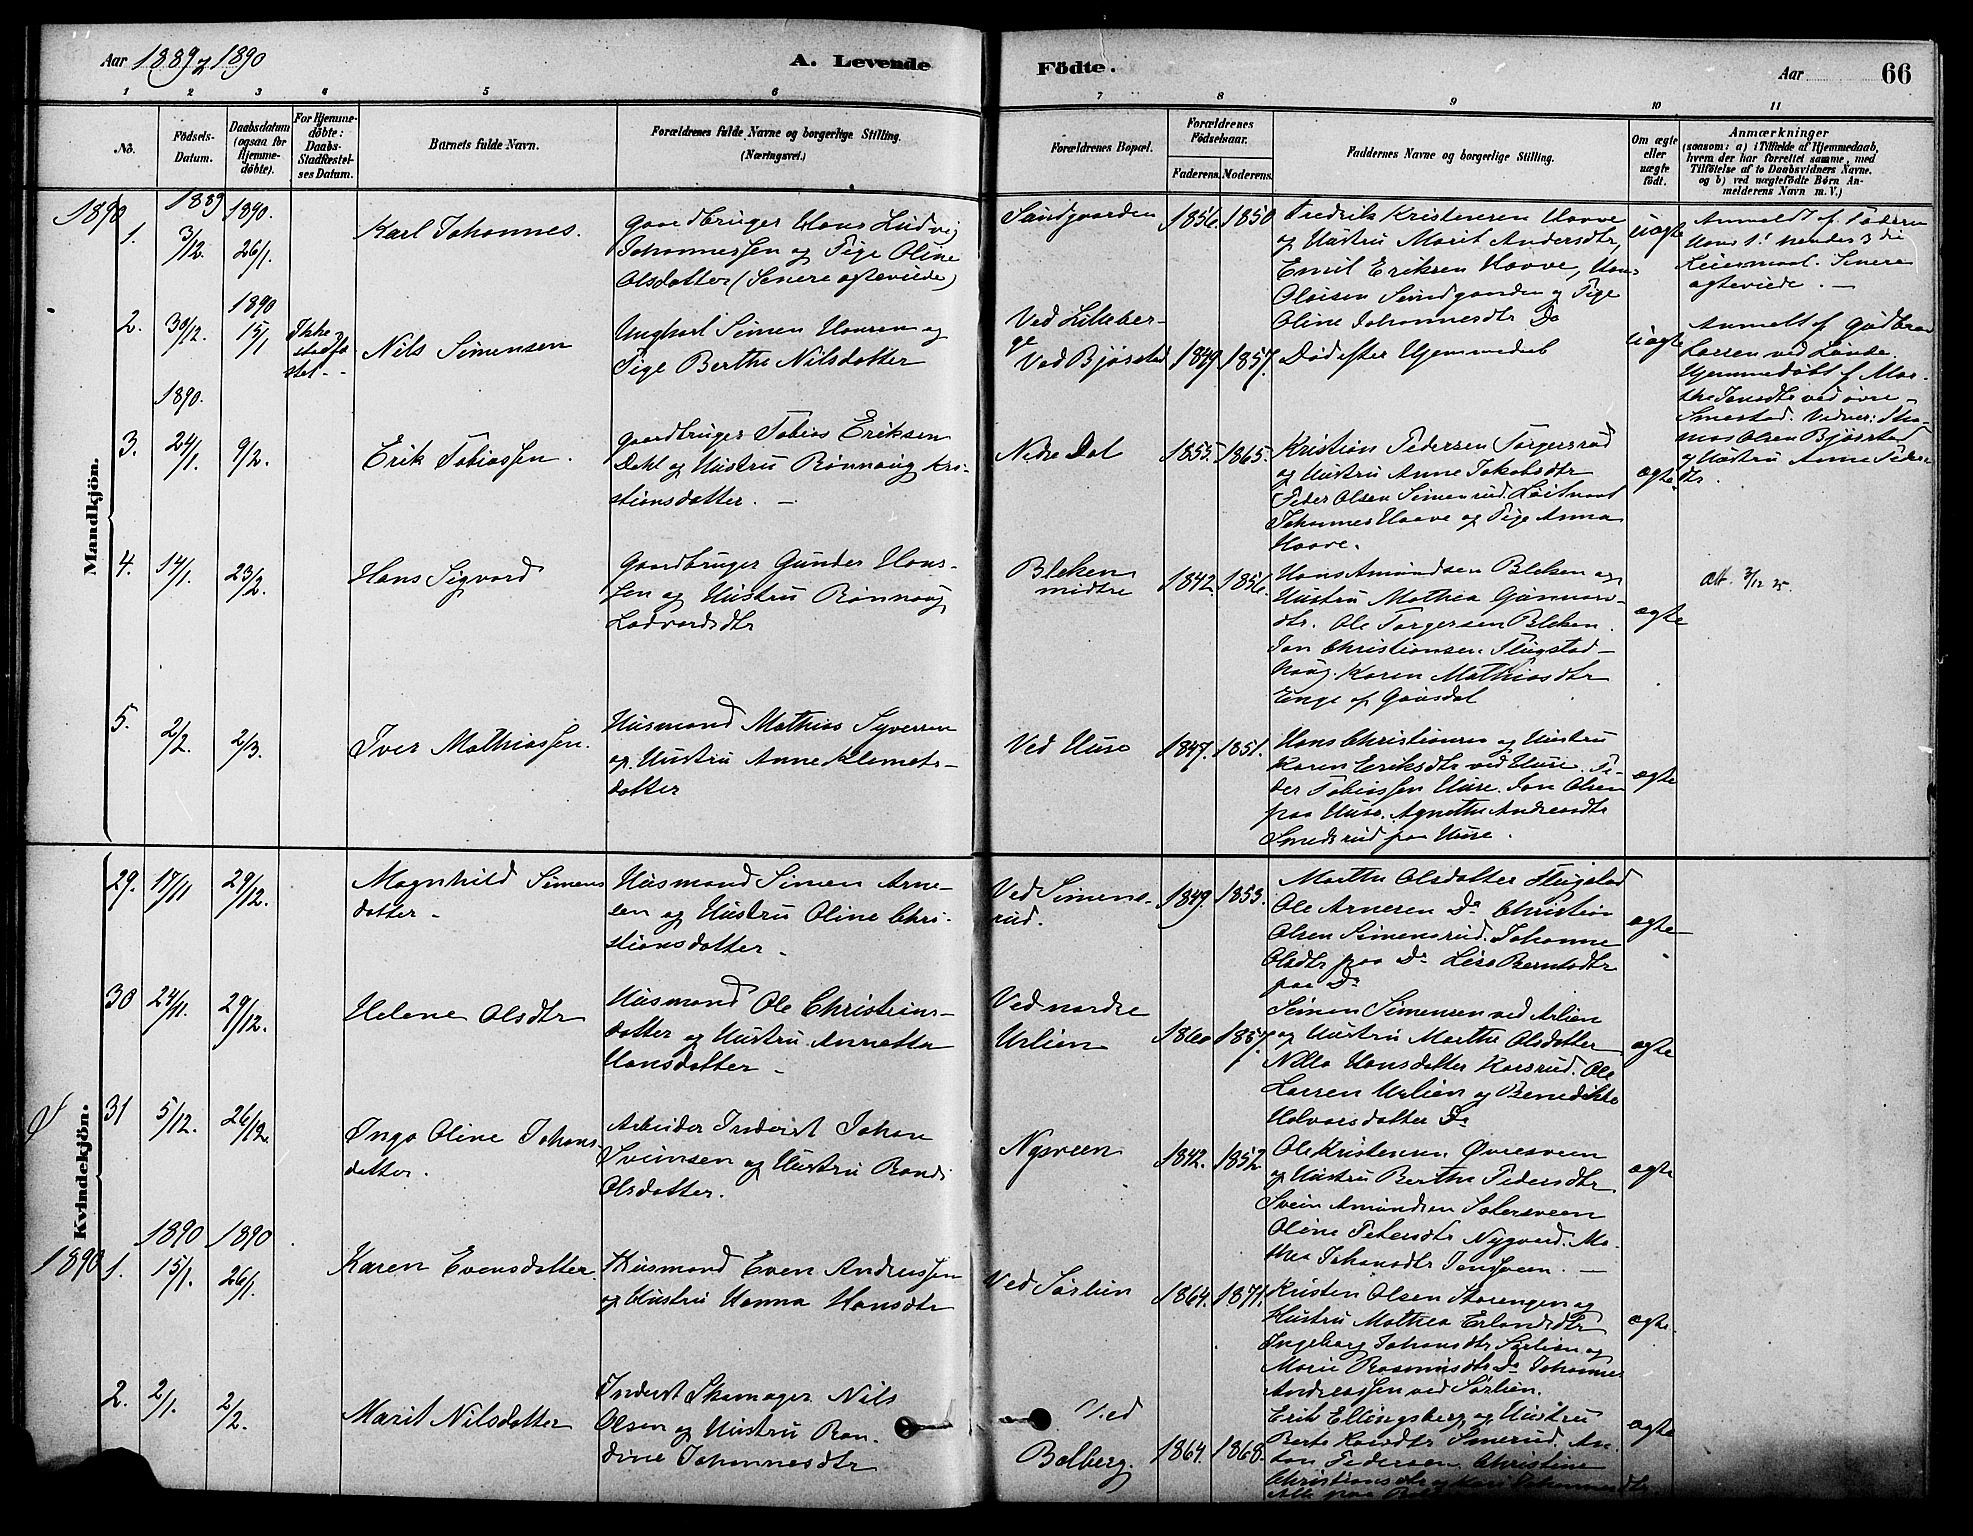 Aar 1889 og 1890
A. Levende Fødte.
Aar 66
1 2 3 4 5 6 7 8 9 10 11
No.
Fødsels-Datum.
Daabsdatum (ogsaa for Hjemmedøbte).
For Hjemmedøbte: Daabs-Stadfæstelses Datum.
Barnets fulde Navn.
Forældrenes fulde Navne og borgerlige Stilling. (Næringsvei.)
Forældrenes Bopæl.
Forældrenes Fødselsaar.
Faderens. Moderens.
Faddernes Navne og borgerlige Stilling.
Om ægte eller uægte født.
Anmærkninger
(saasom: a) i Tilfælde af Hjemmedaab,
hvem der har forrettet samme, med
Tilføielse af to Daabsvidners Navne.
og b) ved uægtefødte Børn Anmelderens
Navn m. V.)
Mandkjøn.
1890
1.
1889
3/12.
1890.
26/1.
Karl Johannes.
Gaardbruger Hans Ludvig
Johannessen og Pige Oline
Olsdatter (Senere ægteviede)
Sandgaarden
1856. 1850
Fredrik Kristensen Haave
og Hustru Marit Andersdtr,
Emil Eriksen Haave,
Olaisen Sandgaarden og Pige
Oline Johannesdtr Do
uægte
Anmeldt af Faderen
Hans 1' hendes 3die
Leiermaal. Senere
ægteviede. —
2.
30/12.
1890
15/1
Ikke
stadfæ
stet. -
Nils Simensen
Ungkarl Simen Hansen og
Pige Berthe Nilsdatter
Ved Lilleber-
ge
Ved Bjørstad
1849. 1857.
Død efter Hjemmedaab
uægte
Anmelt af Gudbran
Larsen ved Lunde.
Hjemmedøbt af Mar-
the Jensdtr ved øvre
Smestad. Vidner: Tho-
mas Olsen Bjørstad
og Hustru Anne Peder-
dtr.
1890.
3.
24/1.
9/2.
Erik Tobiassen.
Gaardbruger Tobias Eriksen
Dahl og Hustru Rønnaug Kri-
stiansdatter. —
Nedre Dal
1855. 1865.
Kristian Pedersen Torgersrud
og Hustru Anne Jakobsdtr
Peder Olsen Simensrud. Løitnant
Johannes Haave og Pige Anna
Haave.
ægte.
4.
14/1.
23/2.
Hans Sigvard
Gaardbruger Gunder Han-
sen og Hustru Rønnaug
Ladvardsdtr
Bleken
midtre
1842. 1856.
Hans Amundsen Bleken og
Hustru Mathea Gunnars-
dtr. Ole Torgersen Bleken.
Jon Christiansen Flugstad-
haug. Karen Mathiasdtr
Enge af Gausdal
ægte
Att. 3/12 25.
5.
2/2.
2/3.
Iver Mathiassen.
Husmand Mathias Syversen
og Hustru Anne Klemets-
datter
Ved Huse
1847. 1851.
Hans Christiansen og Hustru
Karen Eriksdtr ved Huse. Pe-
der Tobiassen Huse. Jon Olsen
paa Huse. Agnethe Andreasdtr
Smedsrud paa Huse.
ægte
Kvindekjøn.
29.
17/11
29/12.
Magnhild Simens
datter -
Husmand Simen Arne-
sen og Hustru Oline Chri-
stiansdatter -
Ved Simens-
rud.
1849. 1853.
Marthe Olsdatter Flugstad
Ole Arnesen Do Christian
Olsen Simensrud. Johanne
Olsdtr paa Do Lise Berntsdtr
paa Do
ægte
30
24/11.
29/12.
Helene Olsdtr
Husmand Ole Christians-
datter og Hustru Annette
Hansdatter -
Ved nordre
Urlien
1860 1857.
Simen Simensen ved Urlien
og Hustru Marthe Olsdatter
Nilla Hansdatter Korsrud. Ole
Larsen Urlien og Benedikte
Halvorsdatter Do
ægte
31
5/12.
26/12.
Inga Oline Johans
datter.
Arbeider Inderst Johan
Sveinsen og Hustru Randi
Olsdatter.
Nysveen
1842. 1852
Ole Kristensen Øvresveen
og Hustru Berthe Pedersdtr
Svein Amundsen Sætersveen
Oline Petersdtr Nygaard. Ma-
thea Johansdtr Jensveen. —
ægte
1890
1.
1890
15/1.
1890
26/1.
Karen Evensdatter
Husmand Even Andreassen
og Hustru Hanna Hansdtr
Ved Sørlien
1864. 1871.
Kristen Olsen Storengen og
Hustru Mathea Erlandsdtr
Ingeborg Johansdtr Sørlien og
Marie Rasmusdtr Do Johannes
Andreassen ved Sørlien.
ægte.
2.
2/1.
2/2.
Marit Nilsdatter
Inderst Skomager Nils
Olsen og Hustru Ran-
dine Johannesdtr
Ved
Bølberg.
1864. 1868.
Erik Ellingsberg og Hustru
Berte Smerud. An-
ton Pedersen Christine
Christiansdtr og Kari Johannesdtr.
Alle paa
ægte